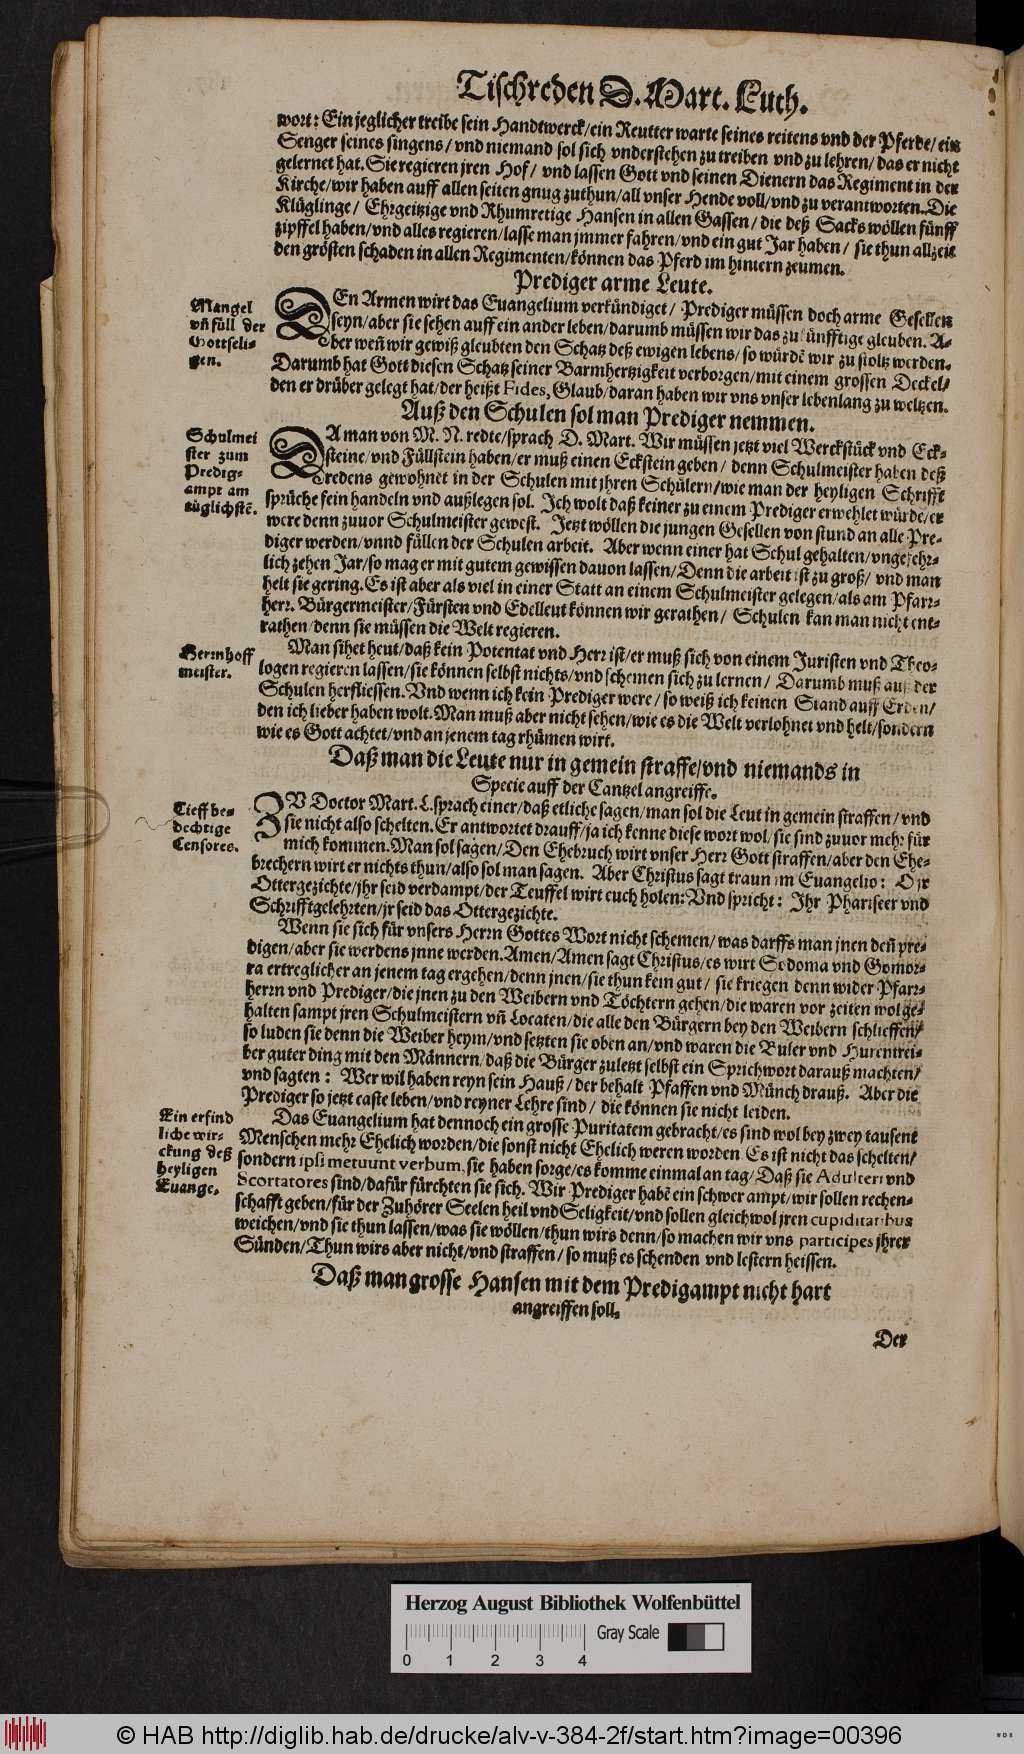 Tischreden D. Mart. Luth.
wort: Ein jeglicher treibe sein Handtwerck/ein Reutter warte seines reitens vnd der Pferde/ein
Senger seines singens/vnd niemand sol sich vnderstehen zu treiben vnd zu lehren/das er nicht
gelernet hat. Sie regieren jren Hof/ vnd lassen Gott vnd seinen Dienern das Regiment in der
Kirche/wir haben auff allen seiten gnug zuthun/all vnser Hende voll/vnd zu verantworten. Die
Klüglinge/ Ehrgeitzige vnd Rhumretige Hansen in allen Gassen/ die deß Sacks wöllen fünff
zipffel haben/vnd alles regieren/lasse man jmmer fahren/vnd ein gut Jar haben/ sie thun allzeit
den grösten schaden in allen Regimenten/können das Pferd im hintern zeumen.
Prediger arme Leute.
Mangel
vñ füll der
Gottseli-
gen.
DEn Armen wirt das Euangelium verkündiget/ Prediger müssen doch arme Gesellen
seyn/aber sie sehen auff ein ander leben/darumb müssen wir das zukünfftige gleuben. A-
ber weñ wir gewiß gleubten den Schatz deß ewigen lebens/so würdē wir zu stoltz werden.
Darumb hat Gott diesen Schatz seiner Barmhertzigkeit verborgen/mit einem grossen Deckel/
den er drüber gelegt hat/der heißt Fides, Glaub/daran haben wir vns vnser lebenlang zu weltzen.
Auß den Schulen sol man Prediger nemmen.
Schulmei
ster zum
Predig-
ampt am
tüglichstē.
DA man von M. N. redte/sprach D. Mart. Wir müssen jetzt viel Werckstück vnd Eck-
steine/vnd Füllstein haben/er muß einen Eckstein geben/ denn Schulmeister haben deß
redens gewohnet in der Schulen mit jhren Schülern/wie man der heyligen Schrifft
sprüche fein handeln vnd außlegen sol. Ich wolt daß keiner zu einem Prediger erwehlet würde/er
were denn zuuor Schulmeister gewest. Jetzt wöllen die jungen Gesellen von stund an alle Pre-
diger werden/vnnd füllen der Schulen arbeit. Aber wenn einer hat Schul gehalten/vngefehr-
lich zehen Jar/so mag er mit gutem gewissen dauon lassen/Denn die arbeit ist zu groß/ vnd man
helt sie gering. Es ist aber als viel in einer Statt an einem Schulmeister gelegen/als am Pfarr-
herr. Bürgermeister/Fürsten vnd Edelleut können wir gerathen/ Schulen kan man nicht ent-
rathen/denn sie müssen die Welt regieren.
Herrnhoff
meister.
Man sihet heut/daß kein Potentat vnd Herr ist/er muß sich von einem Juristen vnd Theo-
logen regieren lassen/sie können selbst nichts/vnd schemen sich zu lernen/ Darumb muß auß der
Schulen herfliessen. Vnd wenn ich kein Prediger were/so weiß ich keinen Stand auff Erden/
den ich lieber haben wolt. Man muß aber nicht sehen/wie es die Welt verlohnet vnd helt/sondern
wie es Gott achtet/vnd an jenem tag rhümen wirt.
Daß man die Leute nur in gemein straffe/vnd niemands in
Specie auff der Cantzel angreiffe.
Tieff be-
dechtige
Censores.
ZV Doctor Mart. L. sprach einer/daß etliche sagen/man sol die Leut in gemein straffen/vnd
sie nicht also schelten. Er antwortet drauff/ja ich kenne diese wort wol/sie sind zuuor mehr für
mich kommen. Man sol sagen/Den Ehebruch wirt vnser Herr Gott straffen/aber den Ehe-
brechern wirt er nichts thun/also sol man sagen. Aber Christus sagt traun im Euangelio: O jr
Ottergezichte/jhr seid verdampt/der Teuffel wirt euch holen: Vnd spricht: Ihr Phariseer vnd
Schrifftgelehrten/jr seid das Ottergezichte.
Wenn sie sich für vnsers Herrn Gottes Wort nicht schemen/was darffs man jnen deñ pre-
digen/aber sie werdens jnne werden. Amen/Amen sagt Christus/es wirt Sodoma vnd Gomor-
ra ertreglicher an jenem tag ergehen/denn jnen/sie thun kein gut/ sie kriegen denn wider Pfarr-
herrn vnd Prediger/die jnen zu den Weibern vnd Töchtern gehen/die waren vor zeiten wol ge-
halten sampt jren Schulmeistern vñ Locaten/die alle den Bürgern bey den Weibern schlieffen/
so luden sie denn die Weiber heym/vnd setzten sie oben an/vnd waren die Buler vnd Hurentrei-
ber guter ding mit den Männern/daß die Bürger zuletzt selbst ein Sprichwort darauß machten/
vnd sagten: Wer wil haben reyn sein Hauß/der behalt Pfaffen vnd Münch drauß. Aber die
Prediger so jetzt caste leben/vnd reyner Lehre sind/ die können sie nicht leiden.
Ein erfind
liche wir-
ckung deß
heyligen
Euange.
Das Euangelium hat dennoch ein grosse Puritatem gebracht/es sind wol bey zwey tausent
Menschen mehr Ehelich worden/die sonst nicht Ehelich weren worden Es ist nicht das schelten/
sondern ipsi metuunt verbum, sie haben sorge/es komme einmal an tag/Daß sie Adulteri vnd
Scortatores sind/dafür fürchten sie sich. Wir Prediger habē ein schwer ampt/wir sollen rechen-
schafft geben/für der Zuhörer Seelen heil vnd Seligkeit/vnd sollen gleichwol jren cupiditatibus
weichen/vnd sie thun lassen/was sie wöllen/thun wirs denn/so machen wir vns participes jhrer
Sünden/Thun wirs aber nicht/vnd straffen/so muß es schenden vnd lestern heissen.
Daß man grosse Hansen mit dem Predigampt nicht hart
angreiffen soll.
Der
Herzog August Bibliothek Wolfenbüttel
Gray Scale
0 1 2 3 4
© HAB http://diglib.hab.de/drucke/alv-v-384-2f/start.htm?image=00396